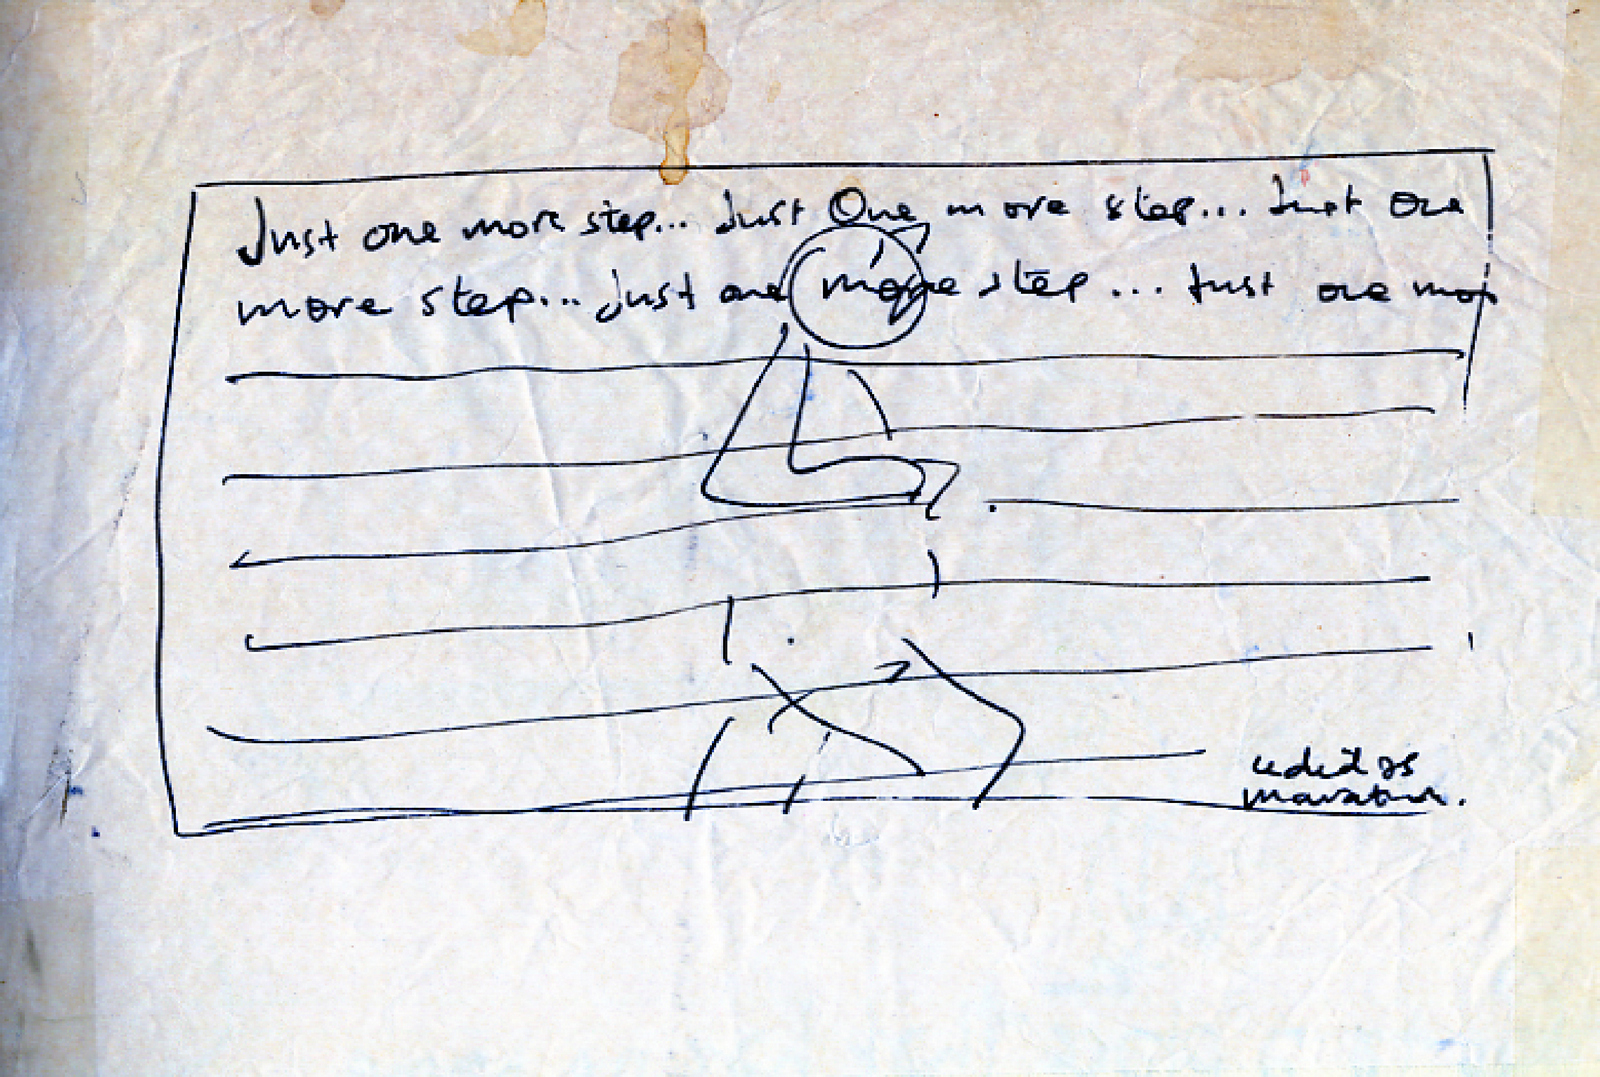 Just one more step... Just One more step... Just one
more step... just one more step... Just one mor